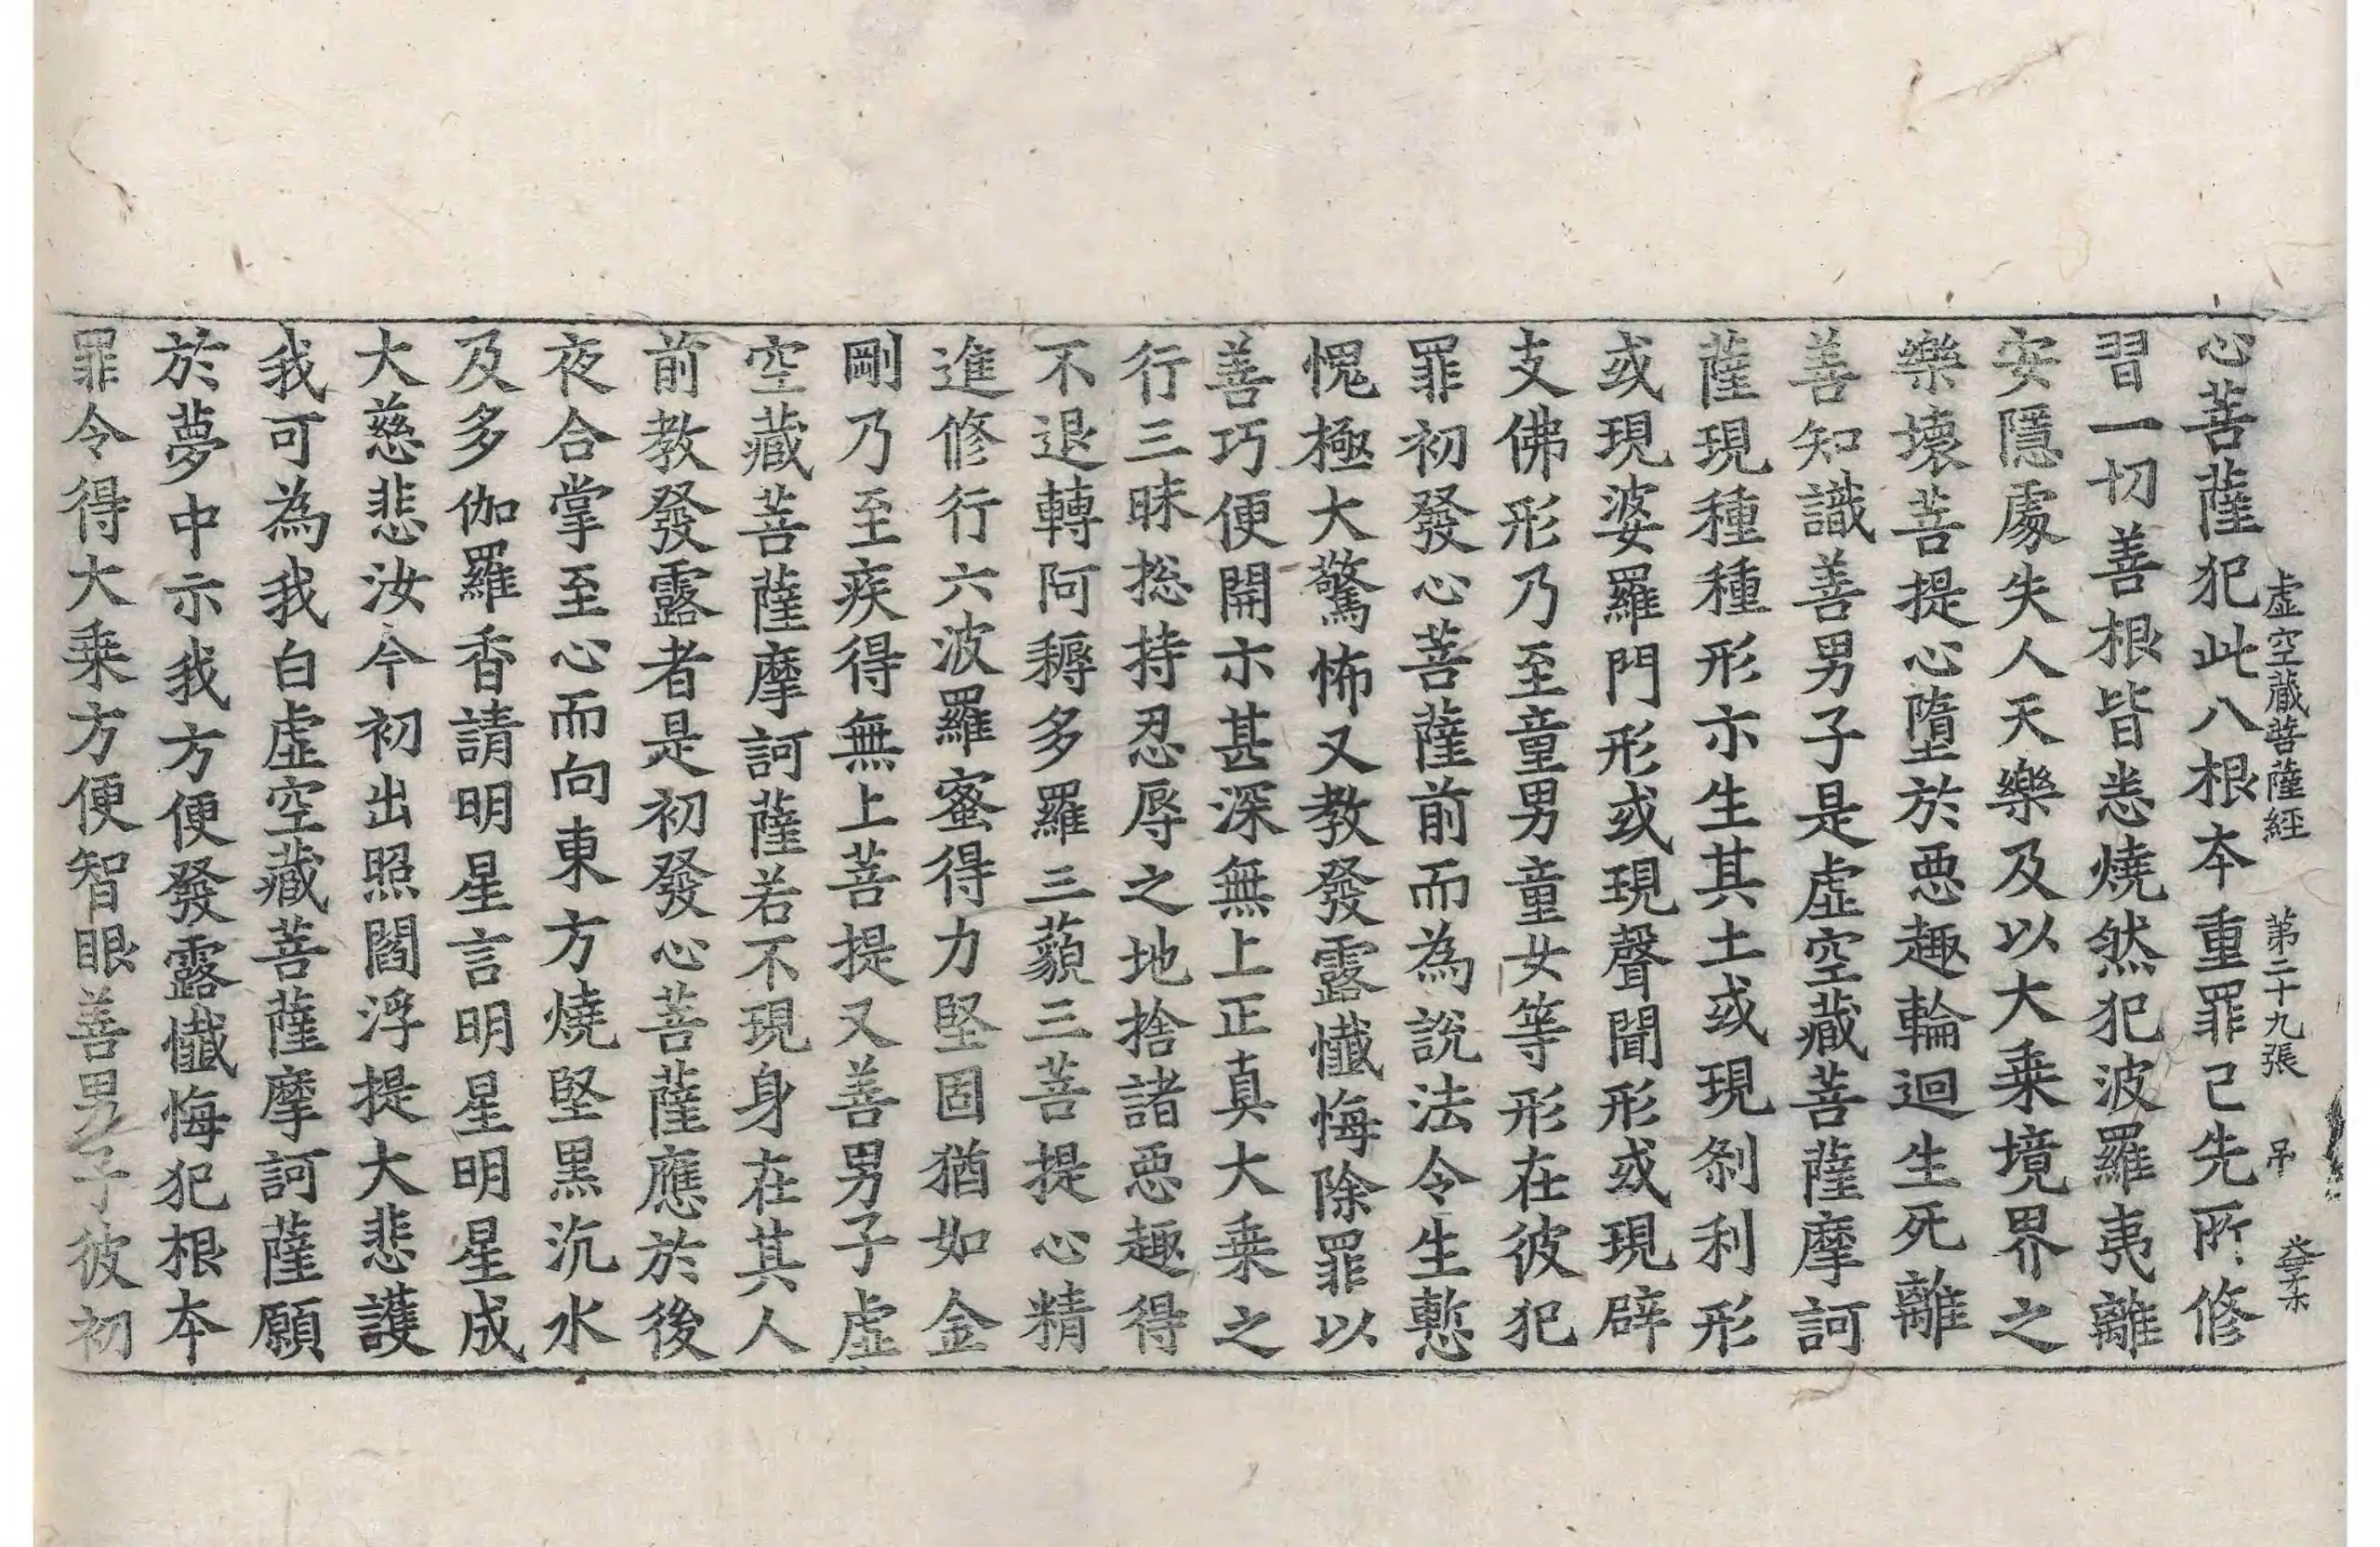 虛空藏菩薩經 第二十九張 吊
心菩薩犯此八根本重罪已先所修
習一切善根皆悉燒然犯波羅夷離
安隱處失人天樂及以大乗境界之
樂壞菩提心墮於惡趣輪迴生死離
善知識善男子是虛空藏菩薩摩訶
薩現種種形示生其土或現刹利形
或現婆羅門形或現聲聞形或現辟
支佛形乃至童男童女等形在彼犯
罪初發心菩薩前而為說法令生慙
愧極大驚怖又教發露懺悔除罪以
善巧便開示甚深無上正真大乗之
行三昧捴持忍辱之地捨諸惡趣得
不退轉阿耨多羅三藐三菩提心精
進修行六波羅蜜得力堅固猶如金
剛乃至疾得無上菩提又善男子虛
空藏菩薩摩訶薩若不現身在其人
前教發露者是初發心菩薩應於後
夜合掌至心而向東方燒堅黒沉水
及多伽羅香請明星言明星明星成
大慈悲汝今初出照閻浮提大悲護
我可為我白虛空藏菩薩摩訶薩願
於夢中示我方便發露懺悔犯根本
罪令得大乗方便智眼善男子彼初